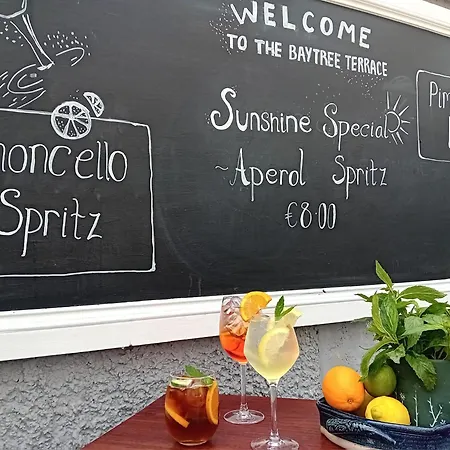 WELCOME
TO THE BAYTREE TERRACE
Sunshine Special
~Aperol Spritz
€8.00
Spritz